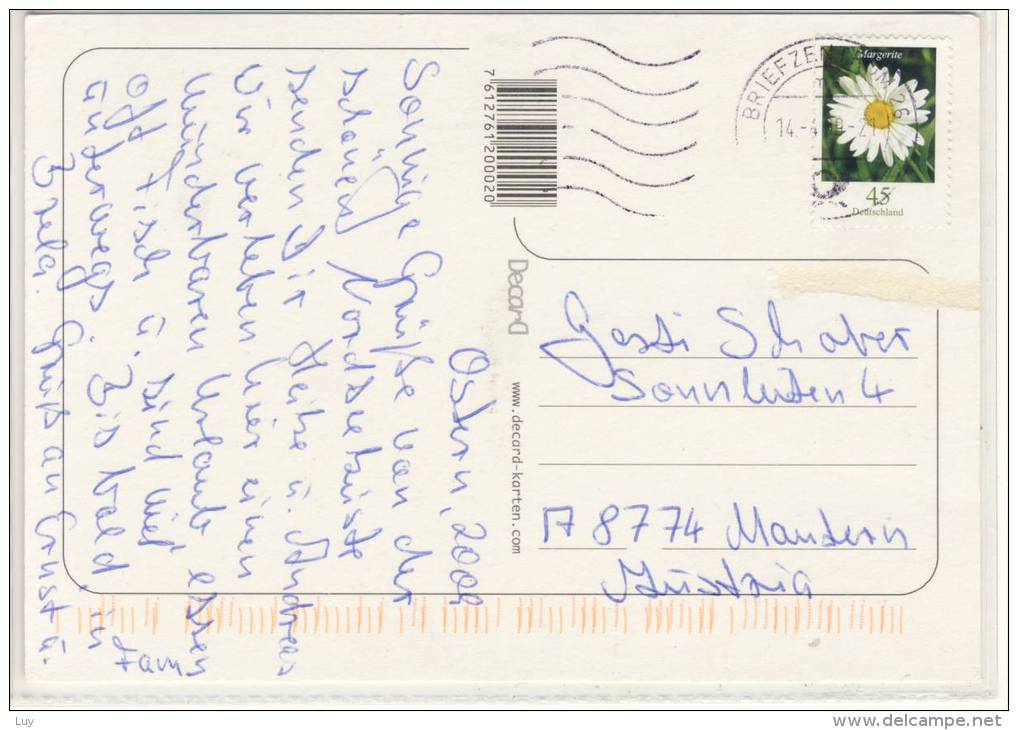 Ostern, 2009
Sonnige Grüße von der
schönen Nordseeküste
senden Dir Heike u. Andreas
Wir verleben hier einen
wunderbaren Urlaub, essen
oft Fisch u. sind viel
unterwegs. Bis bald, in
Gruß an Ernst u.
Fam
7612761200020
Decard
www.decard-karten.com
BRIEFZEN
26
14.-4
Margerite
45
Deutschland
Gesti Schober
Sonnleiten 4
A 8774 Mautern
Austria
Luy
delcampe.net